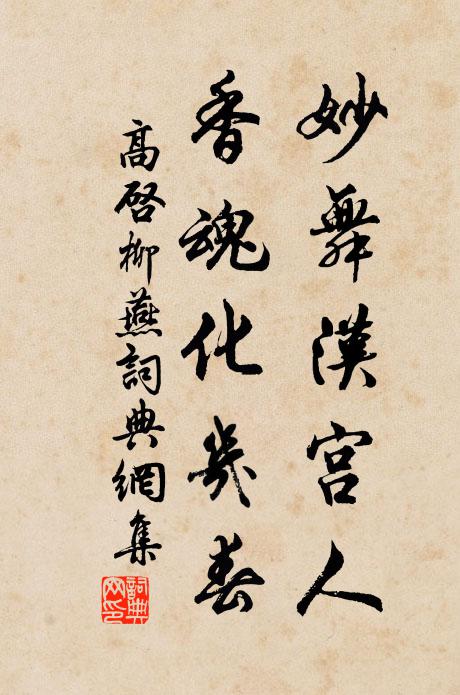 妙舞漢宮人
香魂化幾春
高啓柳燕詞典網集
詞典網印